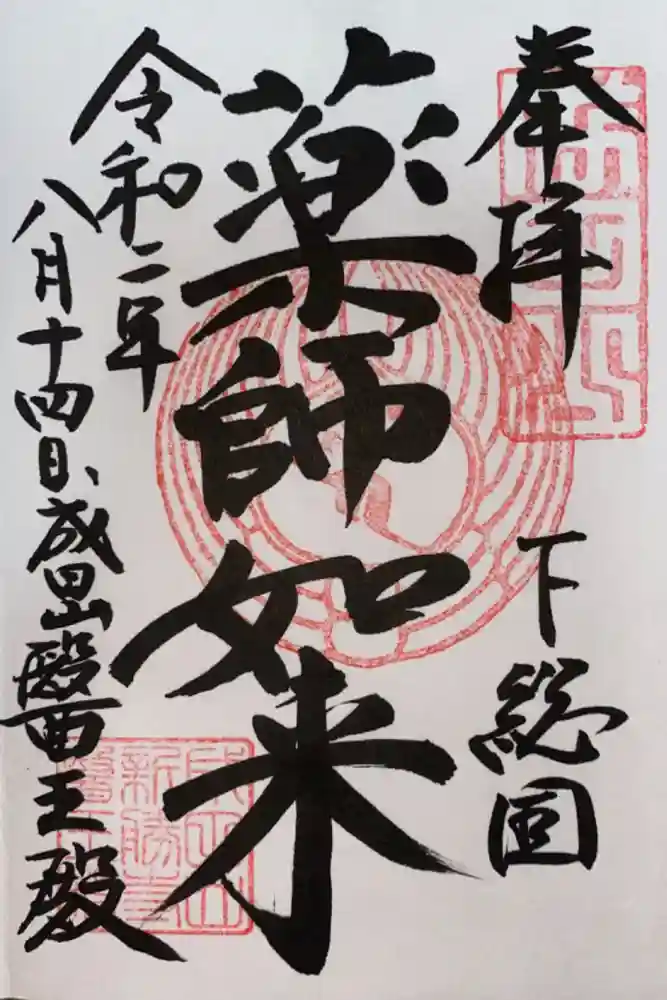 奉拝 下総国
薬師如来
令和二年
八月十四日、成田山醫王殿
成田山
新勝寺
醫王殿